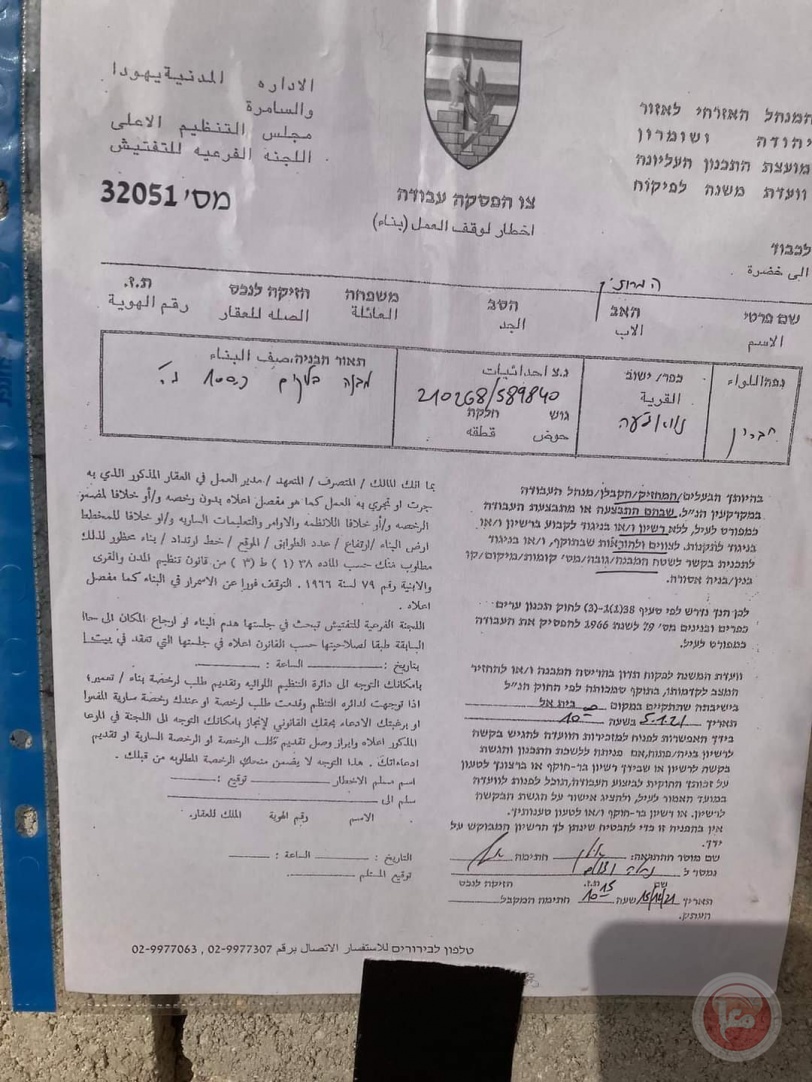 המנהל האזרחי לאזור
יהודה ושומרון
מועצת התכנון העליונה
וועדת משנה לפיקוח
الاداره المدنيةيهودا
والسامرة
مجلس التنظيم الاعلى
اللجنه الفرعيه للتفتيش
צו הפסקה עבודה
اخطار لوقف العمل (بناء)
מס' 32051
לכבוד
الى حضرة
שם פרטי האב הסב משפחה הזיקה לנכס ת.ז.
الاسم الاب الجد العائلة الصله للعقار رقم الهوية
נפה/اللواء
חברון
כפר/ ישוב
القرية
נ.צ احداثيات
210268/589840
גוש חלקה
حوض قطعه
תאור הבניה،صف البناء
בהיותך הבעלים/המחזיק/הקבלן/מנהל העבודה
במקרקעין הנ"ל, שבהם התבצעה או מתבצעת העבודה
כמפורט לעיל, ללא רשיון ו/או בניגוד לקבוע ברשיון ו/או
בניגוד לתקנות, לצווים ולהוראות שבתוקף, ו/או בניגוד
לתכנית בקשר לשטח המבנה/גובה/מס' קומות/מיקום/קו
בנין/בניה אסורה.
לכן הנך נדרש לפי סעיף 38(1)(ג-3) לחוק תכנון ערים
כפרים ובנינים מס' 79 לשנת 1966 להפסיק את העבודה
כמפורט לעיל.
וועדת המשנה לפקוח תדון בהריסת המבנה ו/או להחזיר
המצב לקדמותו, בתוקף סמכותה לפי החוק הנ"ל
בישיבתה שתתקיים במקום בית אל
תאריך 5.1.21 בשעה 10
בידך האפשרות לפנות למזכירות הוועדה להגיש בקשה
לרשיון בניה/פתוח,אם פניתה ללשכת התכנון והגשת
בקשה לרשיון או שבידך רשיון בר-תוקף או ברצונך לטעון
על זכותך החוקית לביצוע העבודה,תוכל לפנות לוועדה
במועד האמור לעיל, ולהציג אישור על הגשת הבקשה
לרשיון, או רשיון בר-תוקף ו/או לטעון טענותיך.
אין בהפניה זו כדי להבטיח שינתן לך הרשיון המבוקש על
ידך.
שם מוסר ההתראה: חתימה
נמסר ל
שם ת.ז. הזיקה לנכס
תאריך שעה 10 15 חתימת המקבל
העתק.
بما انك المالك / المتصرف / المتعهد / مدير العمل في العقار المذكور الذي به
جرت او تجري به العمل كما هو مفصل اعلاه بدون رخصه و/أو خلافا لمضمون
الرخصه و/أو خلافا للانظمه والاوامر والتعليمات الساريه و/او خلافا للمخطط
ارض البناء /ارتفاع / عدد الطوابق / الموقع / خط ارتداد / بناء محظور لذلك
مطلوب منك حسب الماده ٣٨ (١) ط (٣) من قانون تنظيم المدن والقرى
والابنية رقم ٧٩ لسنة ١٩٦٦ . التوقف فورا عن الاسمرار في البناء كما مفصل
اعلاه .
اللجنه الفرعية للتفتيش تبحث في جلستها هدم البناء او ارجاع المكان الى
السابقة طبقا لصلاحيتها حسب القانون اعلاه في جلستها التي تعقد في
بتاريخ : الساعة :
بامكانك التوجه الى دائرة التنظيم اللوائيه وتقديم طلب لرخصة بناء / تعمير؛
اذا توجهت لدائره التنظم وقدمت طلب لرخصة او عندك رخصة سارية المفعول
او برغبتك الادعاء بحقك القانوني لإنجاز بامكانك التوجه الى اللجنة في
المذكور اعلاه وابراز وصل تقديم طلب الرخصة او الرخصة السارية او تقديم
ادعاءاتك . هذا التوجه لا يضمن منحك الرخصة المطلوبه من قبلك .
اسم مسلم الاخطار توقيع :
سلم الى
الاسم رقم الهوية الملك للعقار.
التاريخ : الساعة :
توقيع المستلم
טלפון לבירורים للاستفسار الاتصال برقم 02-9977307 , 02-9977063
معا